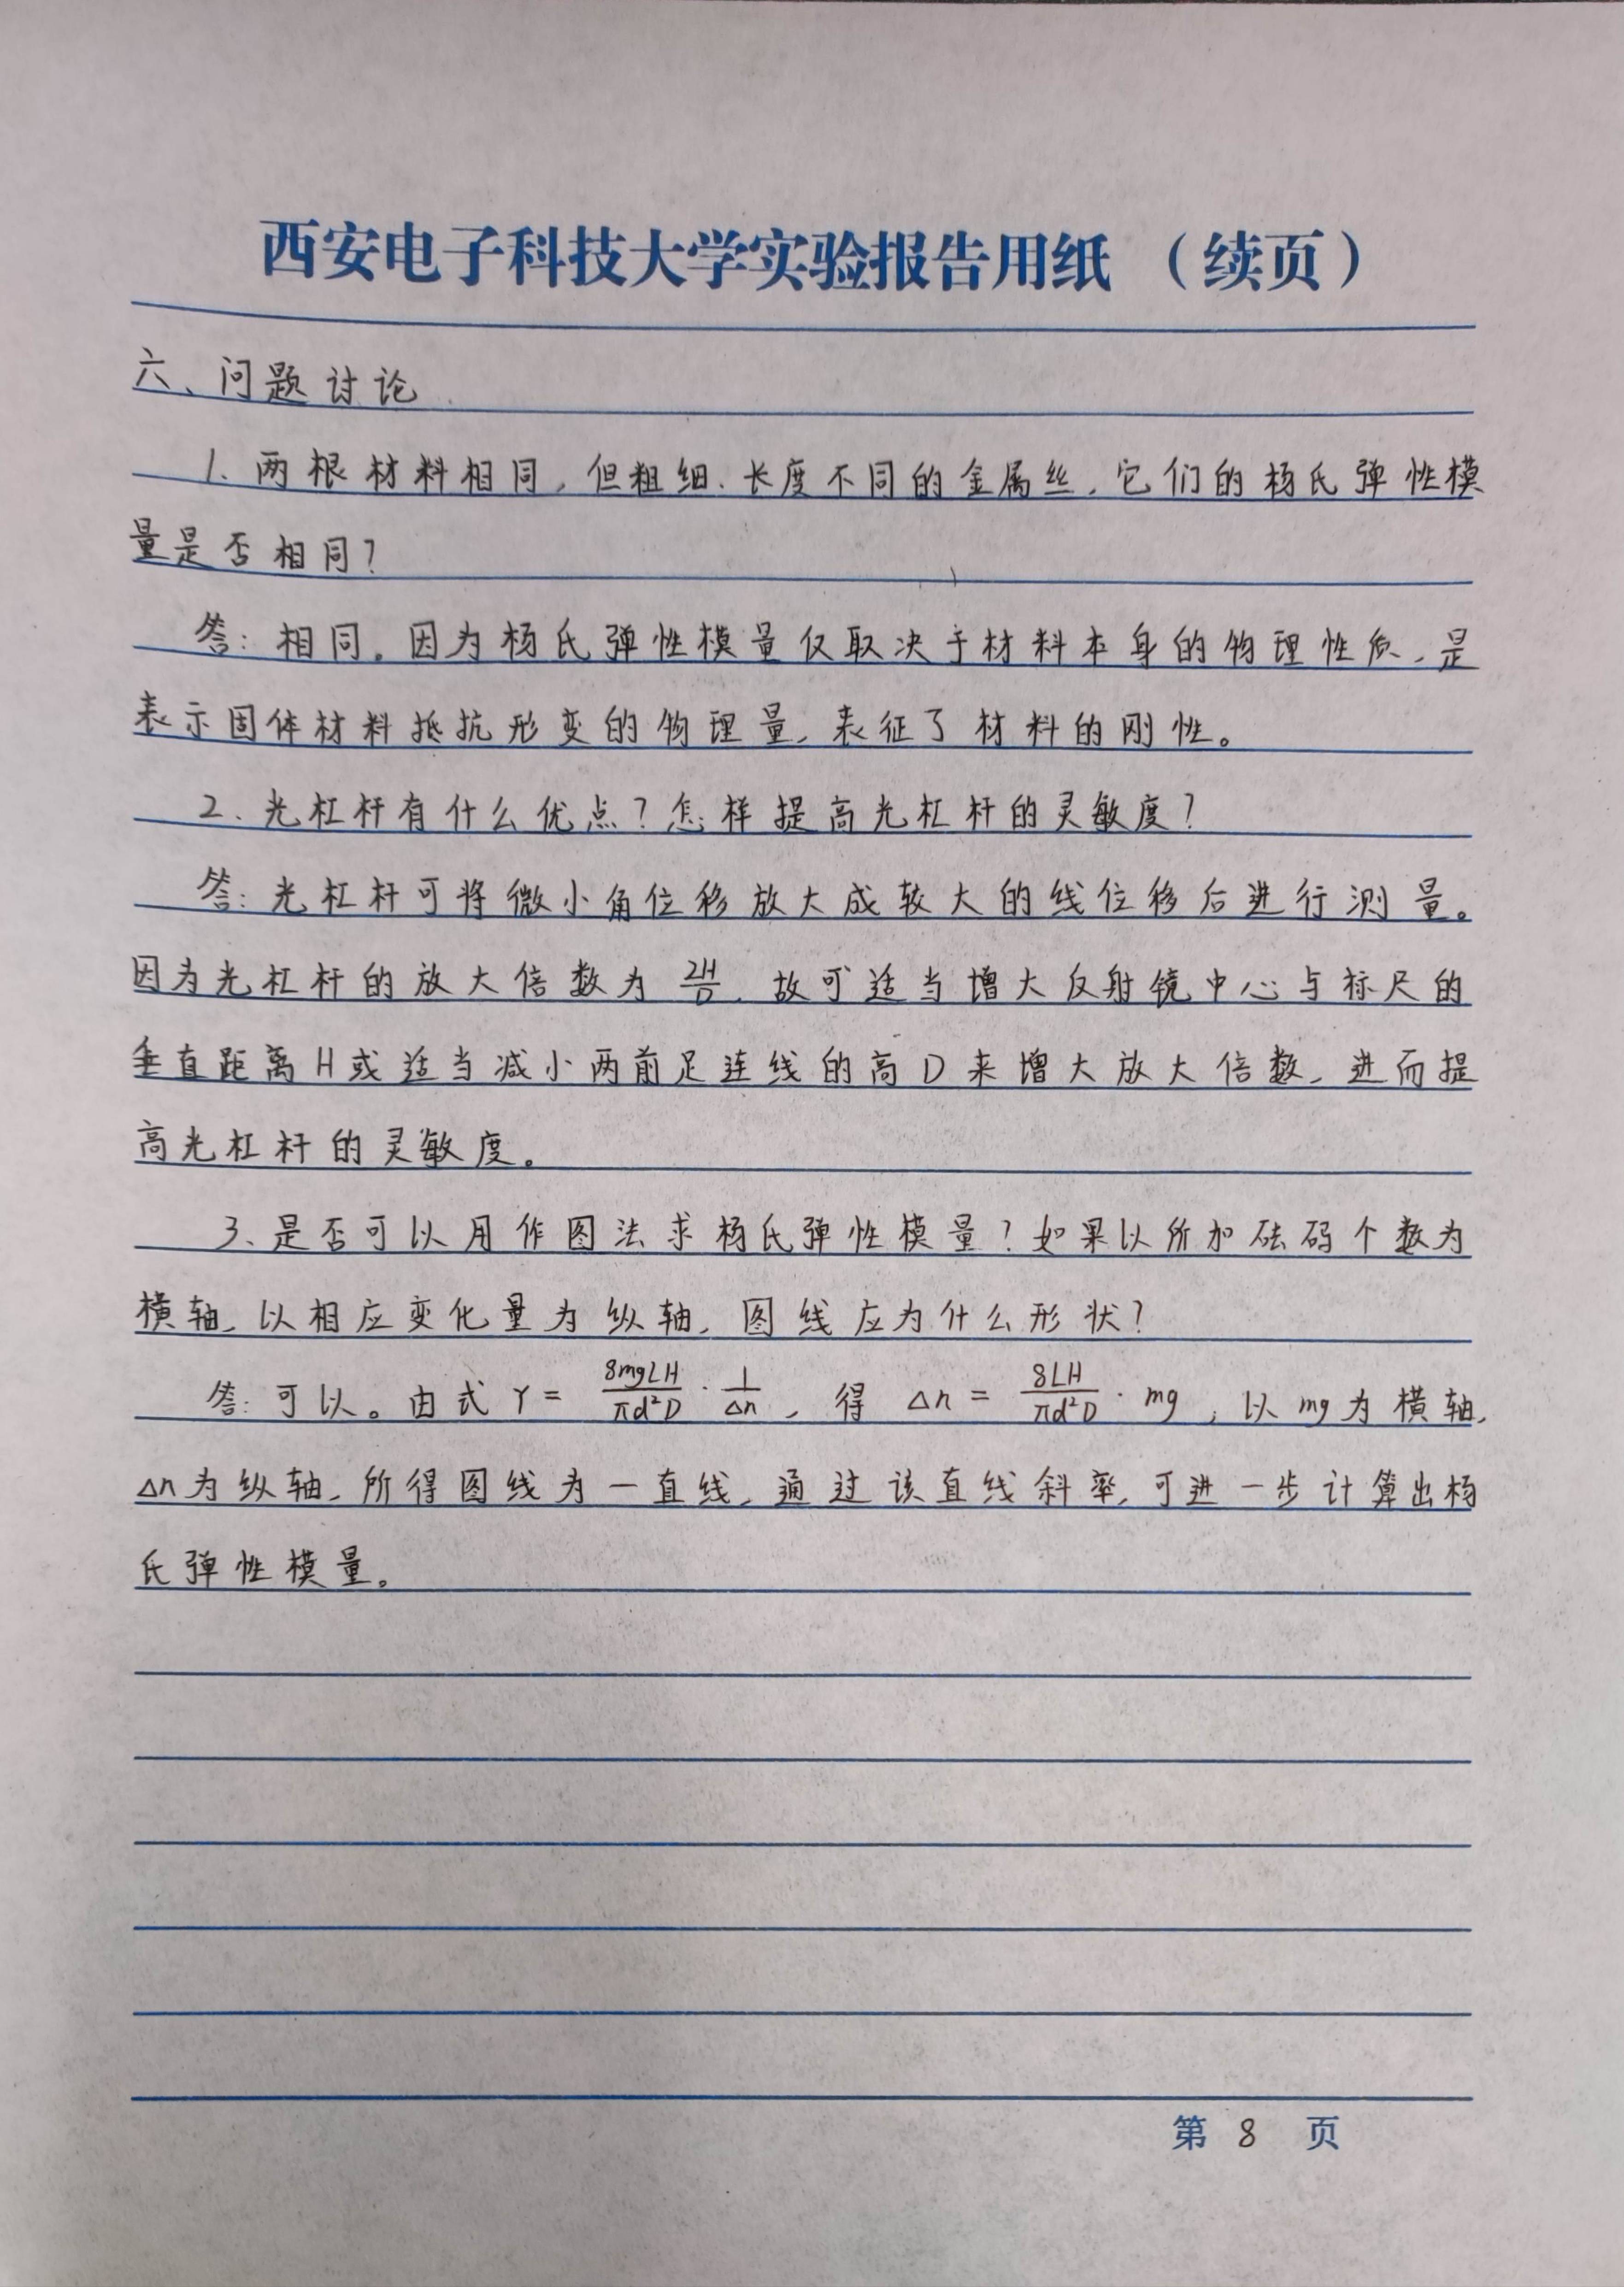 西安电子科技大学实验报告用纸（续页）
六、问题讨论
1、两根材料相同，但粗细、长度不同的金属丝，它们的杨氏弹性模
量是否相同？
答：相同。因为杨氏弹性模量仅取决于材料本身的物理性质，是
表示固体材料抵抗形变的物理量，表征了材料的刚性。
2、光杠杆有什么优点？怎样提高光杠杆的灵敏度？
答：光杠杆可将微小角位移放大成较大的线位移后进行测量。
因为光杠杆的放大倍数为 2H/D，故可适当增大反射镜中心与标尺的
垂直距离H或适当减小两前足连线的高D来增大放大倍数，进而提
高光杠杆的灵敏度。
3、是否可以用作图法求杨氏弹性模量？如果以所加砝码个数为
横轴，以相应变化量为纵轴，图线应为什么形状？
答：可以。由式 Y = 8mgLH/πd²D · 1/Δn，得 Δn = 8LH/πd²D · mg，以mg为横轴，
Δn为纵轴，所得图线为一直线，通过该直线斜率，可进一步计算出杨
氏弹性模量。
第 8 页